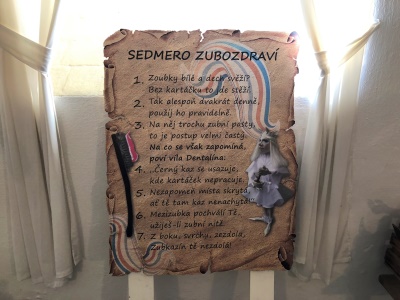 SEDMERO ZUBOZDRAVÍ
1. Zoubky bílé a dech svěží?
Bez kartáčku to jde stěží.
2. Tak alespoň dvakrát denně,
použij ho pravidelně.
3. Na něj trochu zubní pasty,
to je postup velmi častý.
Na co se však zapomíná,
poví víla Dentalína:
4. ..Černý kaz se usazuje,
kde kartáček nepracuje.
5. Nezapomeň místa skrytá,
ať tě tam kaz nenachytá!
6. Mezizubka pochválí Tě
užiješ-li zubní nitě.
7. Z boku, svrchu, zezdola,
Zubkazín tě nezdolá!